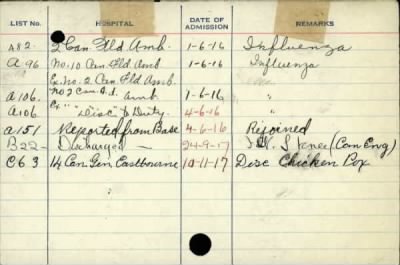 LIST NO. HOSPITAL DATE OF ADMISSION REMARKS
A82. 2 Can Fld Amb. 1-6-16 Influenza
A 96 No. 10 Can Fld Amb 1-6-16 Influenza
Ex No. 2 Can Fld Amb.
A106. No 2 Can Fd. Amb. 1-6-16 "
A106 Ex " " "Disc" to Duty. 4-6-16 "
A151 Reported from Base 4-6-16 Rejoined
B22 — Discharged — 24-9-17 Knee (Can Eng)
C63 14 Can Gen Eastbourne 10-11-17 Disc Chicken Pox